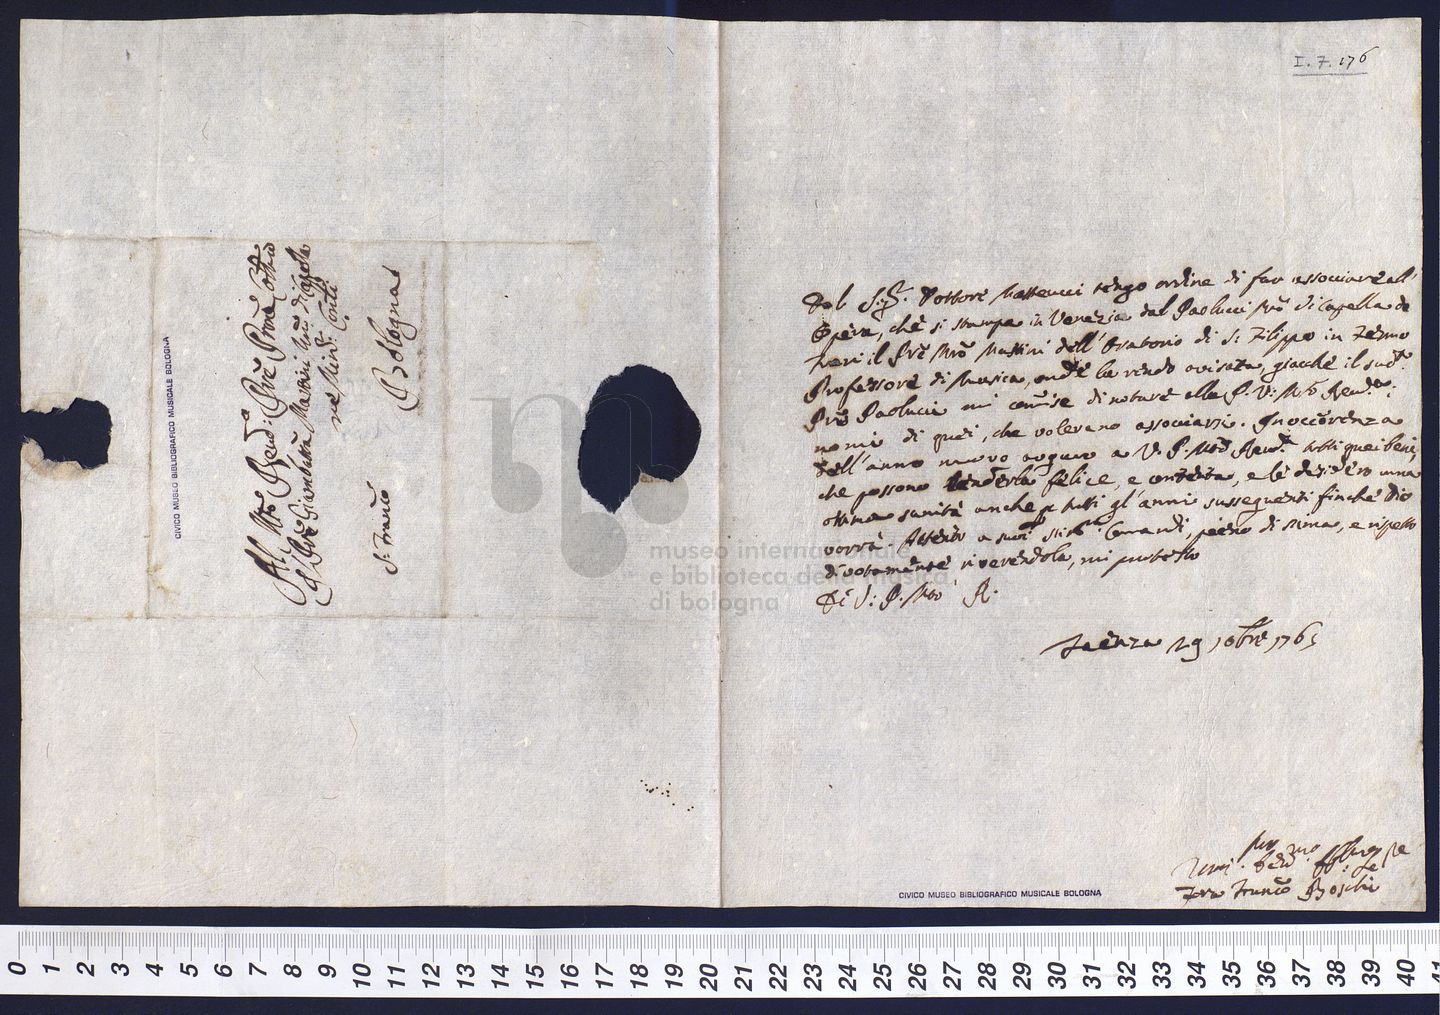 I. 7. 176
Dal Sig.r Dottore Matteucci tengo ordine di far associare all'
Opera, che si stampa in Venezia dal Paolucci Mro di Capella de
Frari il Pre Mro Mattini dell'Oratorio di S. Filippo in Fermo
Professore di Musica, onde la rendo avisata, giacchè il sud.o
Pre Paolucci mi comise di notare alla P. V. Mto Rev.da i
nomi di quei, che volevano associarsi. In occorenza
dell'anno nuovo auguro a V. P. Mto Rev.da tutti quei beni,
che possono renderla felice, e contenta, e le desidero una
ottima sanità anche p tutti gl'anni susseguenti finchè Dio
vorrà. Attento a suoi stim.mi Comandi, pieno di stima, e rispetto
divotamente riverendola, mi protesto
Di V: P. Mto R.
Faenza 29 10bre 1765
Umi.mo Dev.mo Obb.mo Se
Fra Franco Boschi
Al Mto Rev.do Pre Prone Colmo
Il Pre Giambatta Martini Mro di Capella
ne Min: Conli
S: Franco
Bologna
CIVICO MUSEO BIBLIOGRAFICO MUSICALE BOLOGNA
CIVICO MUSEO BIBLIOGRAFICO MUSICALE BOLOGNA
museo internazionale
e biblioteca della musica
di bologna
0 1 2 3 4 5 6 7 8 9 10 11 12 13 14 15 16 17 18 19 20 21 22 23 24 25 26 27 28 29 30 31 32 33 34 35 36 37 38 39 40 41